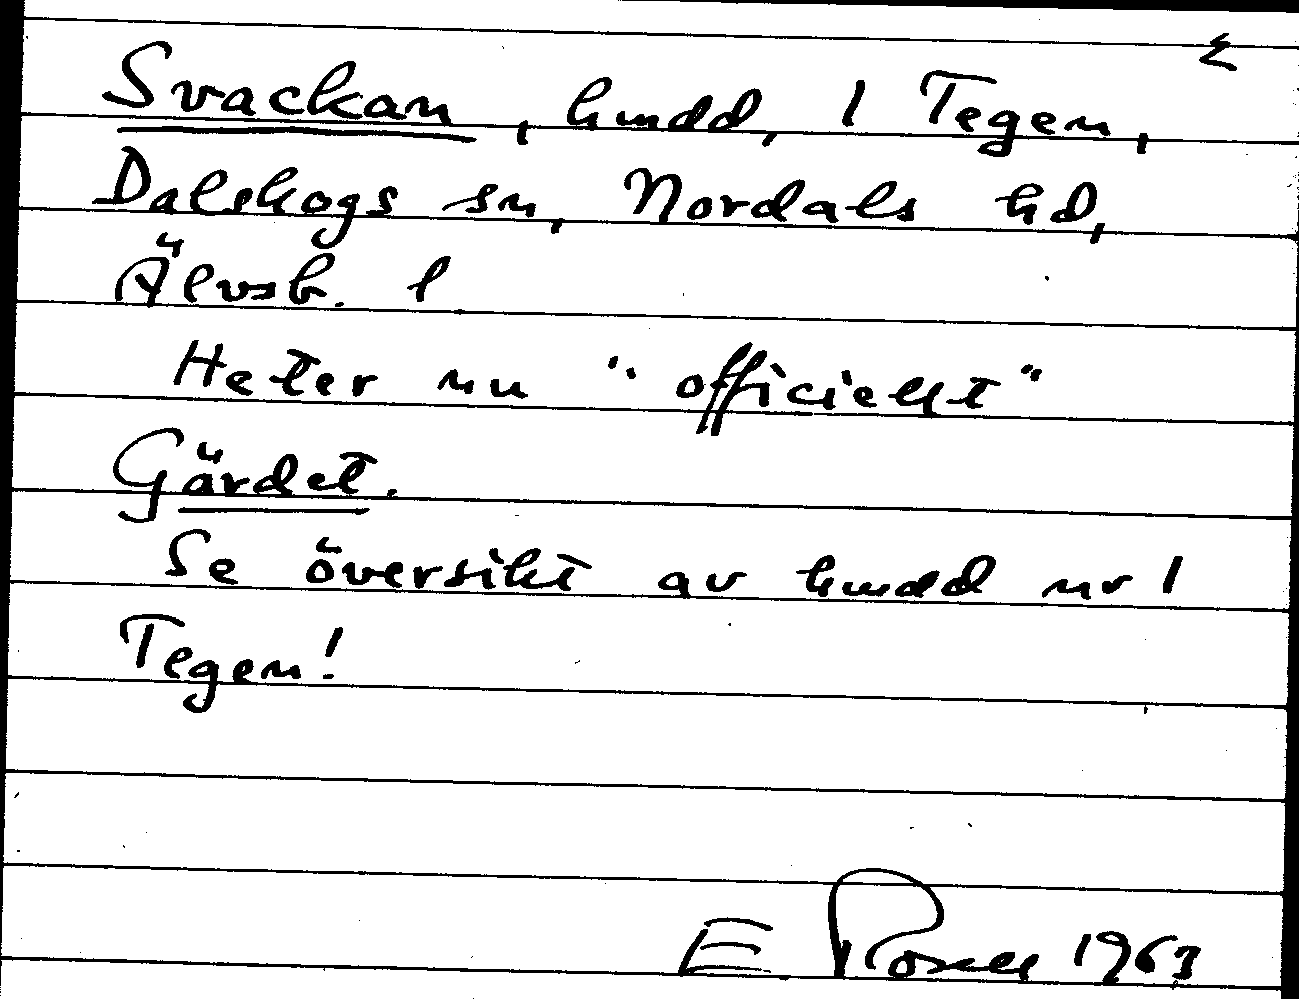 Svackan, hmdd, 1 Tegen,
Dalskogs sn, Nordals hd,
Älvsb. l
Heter nu "officiellt"
Gärdet.
Se översikt av hmdd nr 1
Tegen!
E 1963